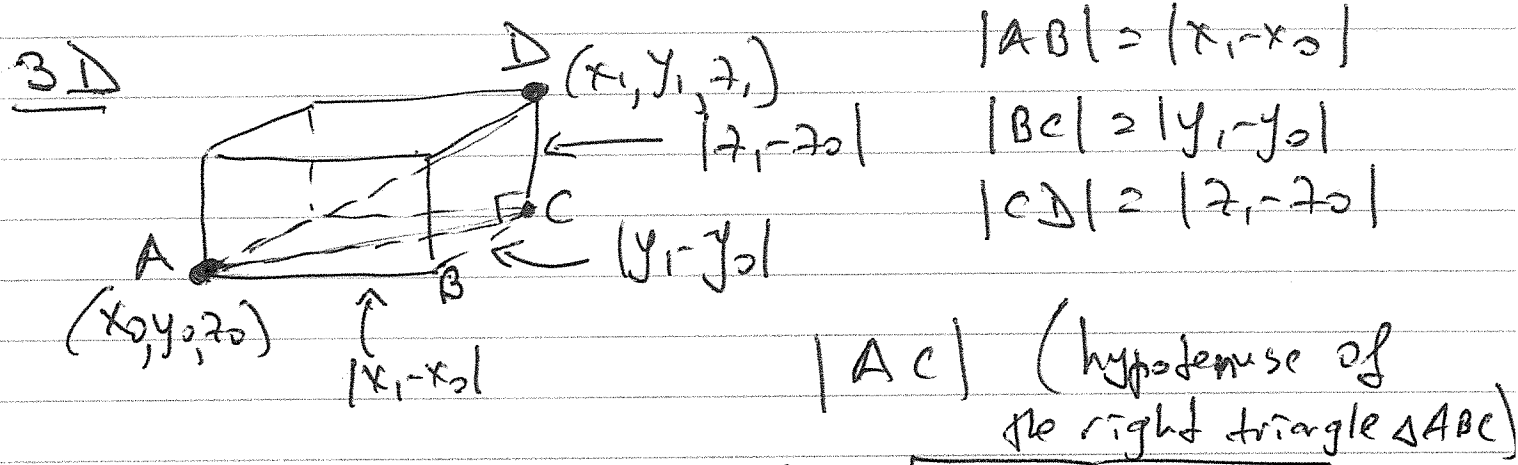 3D
D (x₁, y₁, z₁)
|z₁-z₀|
C
|y₁-y₀|
A
B
(x₀, y₀, z₀)
|x₁-x₀|
|AB| = |x₁-x₀|
|BC| = |y₁-y₀|
|CD| = |z₁-z₀|
|AC| (hypotenuse of
the right triangle △ABC)